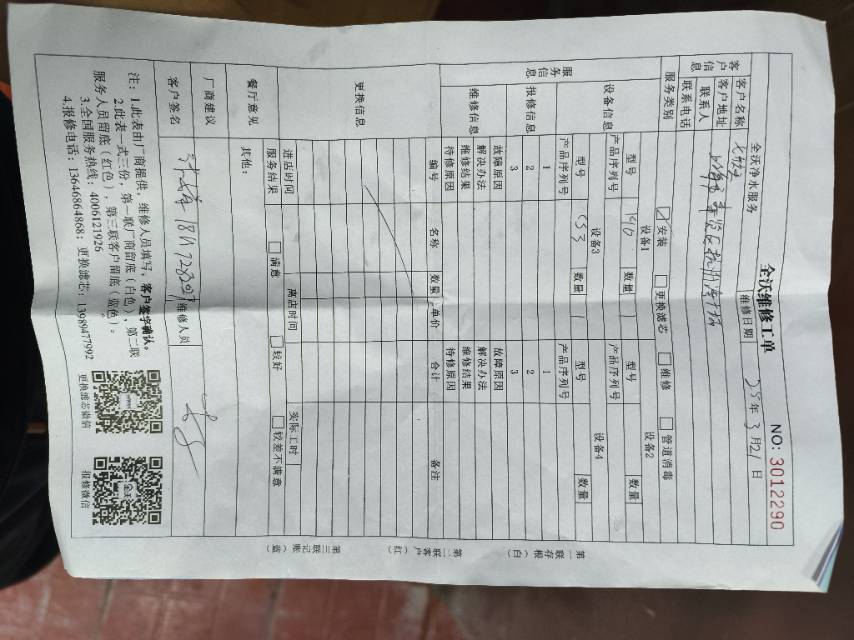 全沃维修工单
NO: 3012290
全沃净水服务
维修日期 25年3月21日
客户信息
客户名称
客户地址
联系人
联系电话
服务类别 安装 更换滤芯 维修 管道消毒
服务信息
设备信息
设备1 设备2
型号 数量 1 型号 数量
产品序列号 产品序列号
设备3 设备4
型号 数量 1 型号 数量
产品序列号 产品序列号
报修信息
1 1
2 2
3 3
维修信息
故障原因 故障原因
解决办法 解决办法
维修结果 维修结果
待修原因 待修原因
更换信息
编号 名称 数量 单价 合计 备注
进店时间 离店时间 实际工时
餐厅意见
服务结果 满意 较好 较差不满意
其他：
厂商建议
客户签名 维修人员
注：1.此表由厂商提供，维修人员填写，客户签字确认。
2.此表一式三份，第一联厂商留底（白色），第二联
服务人员留底（红色），第三联客户留底（蓝色）。
3.全国服务热线：4006121926
4.报修电话：13646864868；更换滤芯：13989477992
更换滤芯微信
报修微信
第一联存根（白）
第二联客户（红）
第三联记账（蓝）